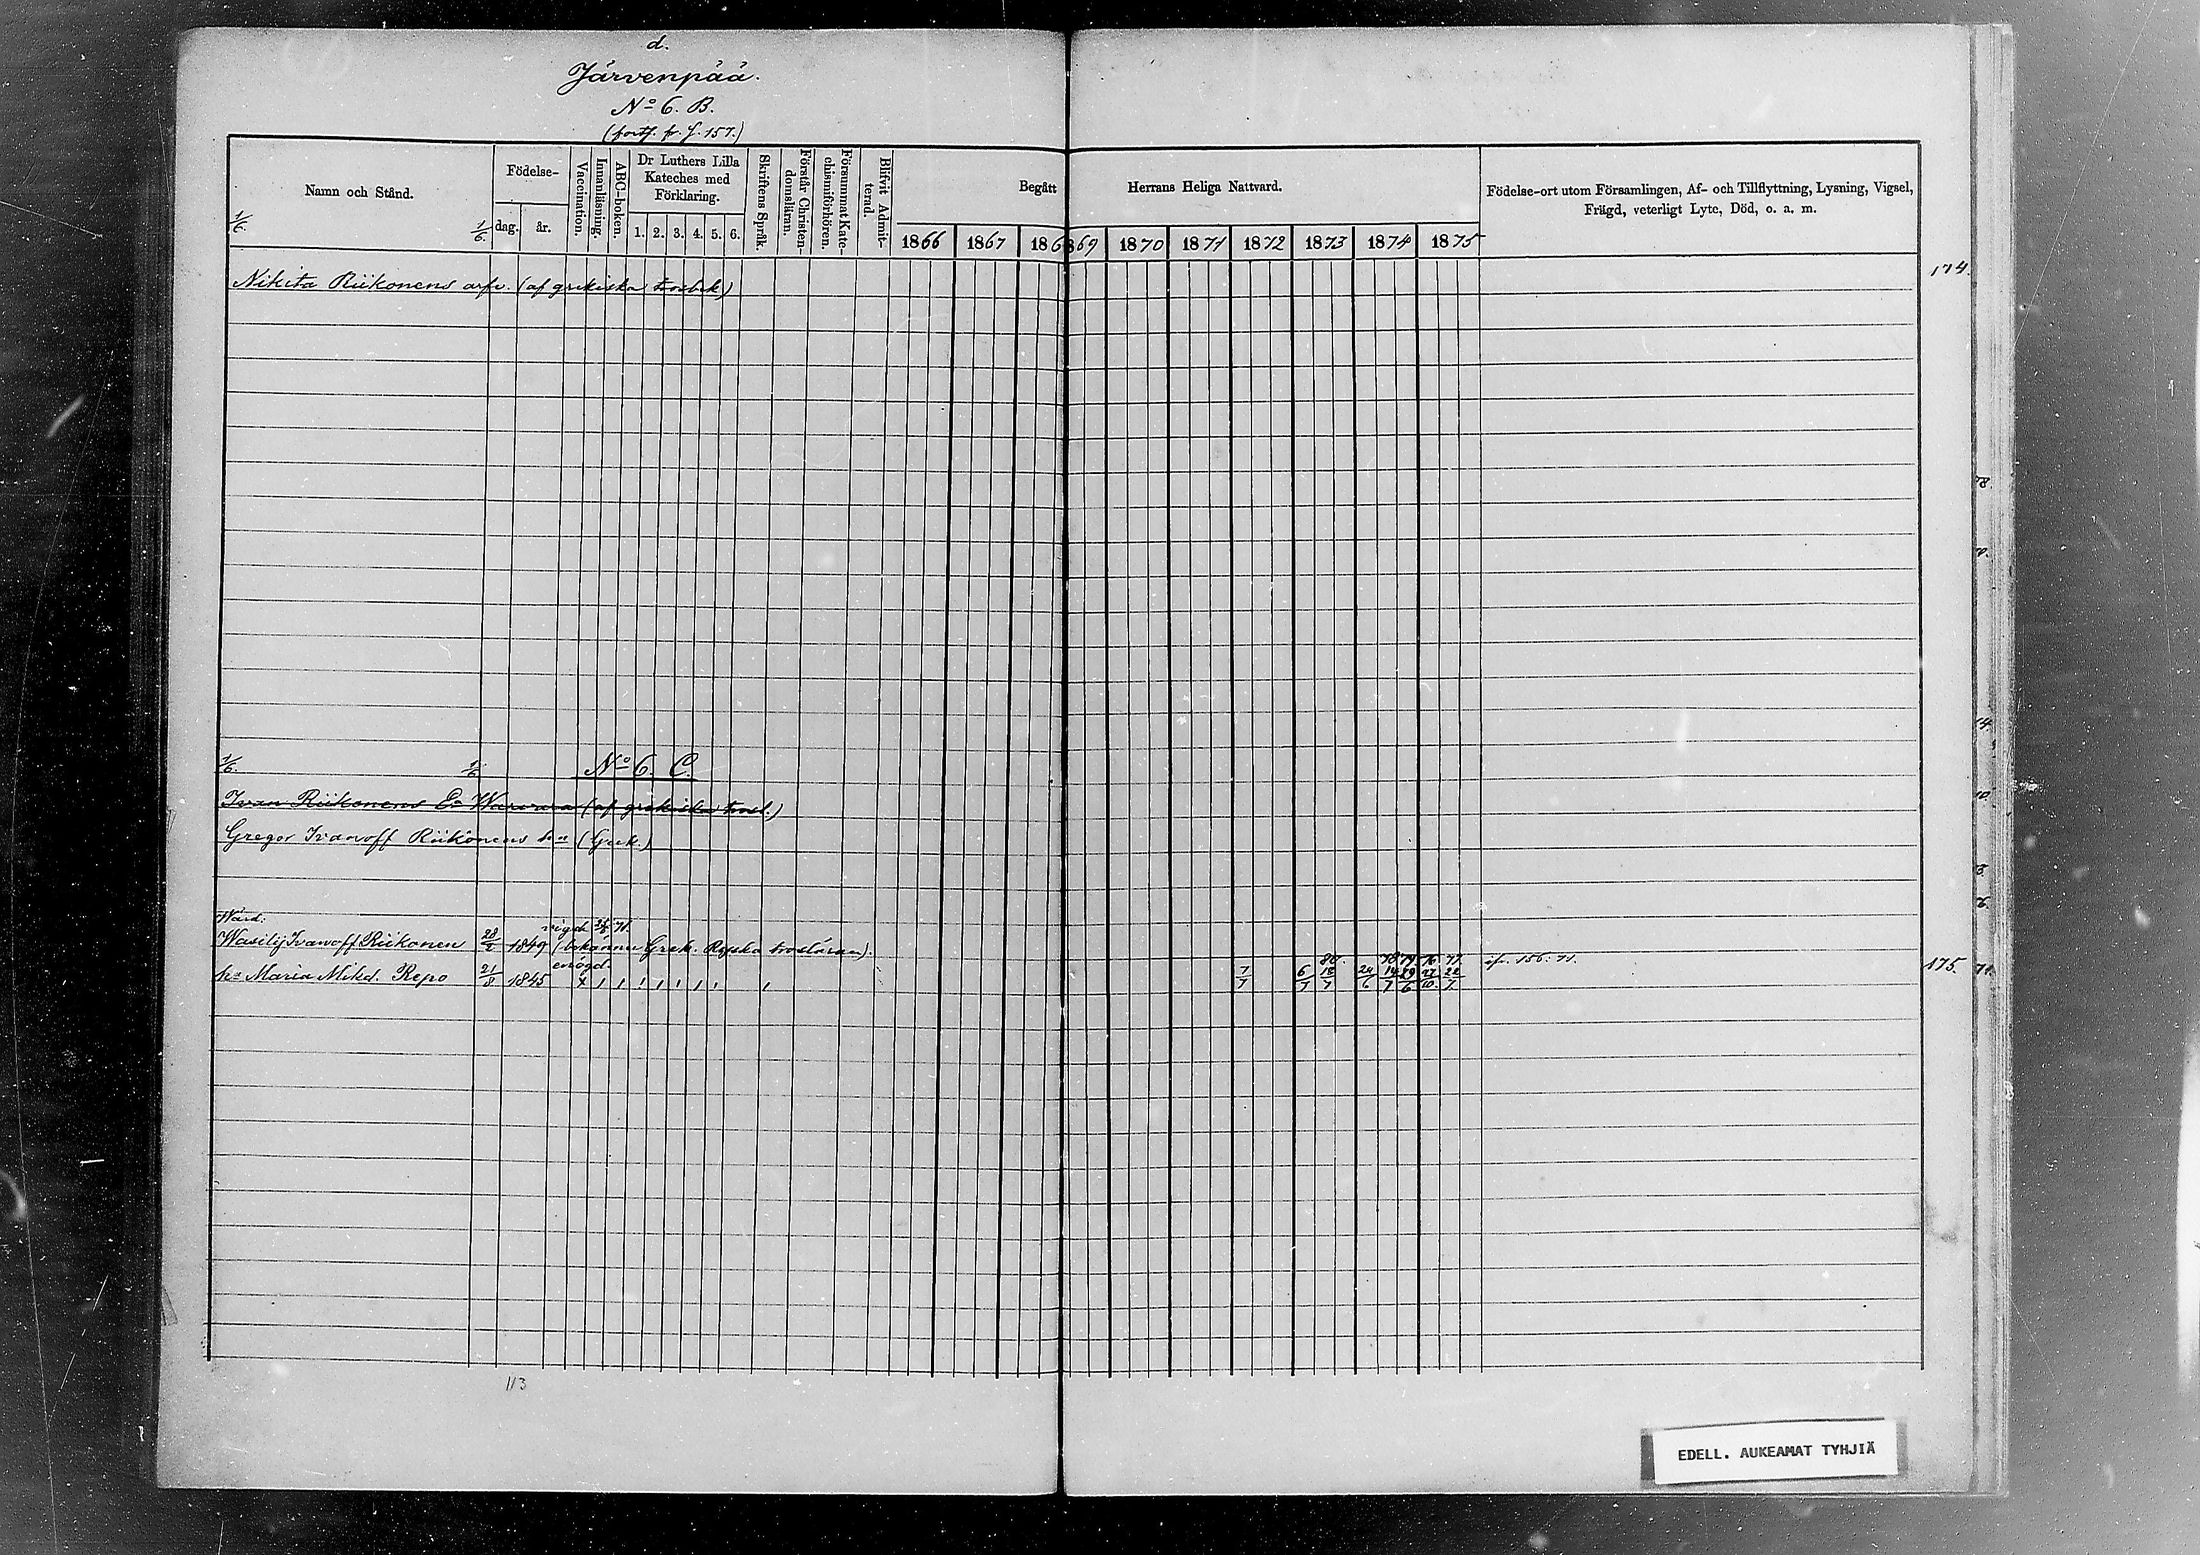 d.
Järvenpää.
No 6. B.
(forts. fr. f. 157.)
Namn och Stånd.
1/6.
1/6.
Födelse-
dag.
år.
Vaccination.
Innanläsning.
ABC-boken.
Dr Luthers Lilla
Kateches med
Förklaring.
1. 2. 3. 4. 5. 6.
Skriftens Språk.
Förstår Christen-
domsläran.
Försummat Kate-
chismiförhören.
Blifvit Admit-
terad.
Begått Herrans Heliga Nattvard.
1866 1867 186 869 1870 1871 1872 1873 1874 1875
Födelse-ort utom Församlingen, Af- och Tillflyttning, Lysning, Vigsel,
Frägd, veterligt Lyte, Död, o. a. m.
174.
Nikita Riikonens arfv. (af grekiska trosbek)
1/6. 1/6 No 6. C.
Ivan Riikonens Ea Warvara (af grekiska trosl.)
Gregor Ivanoff Riikonens hn (Grek.)
Wärd:
vigde 71.
Wasilij Ivanoff Riikonen 28/2 1849 (bekänner Grek. Ryska trosläran).
enögd.
80. 78 79. 76 77.
if. 156. 71.
175.
71.
hu Maria Mikd. Repo 21/8 1845 7/7 6/7 18/7 24/6 14/7 29/6 27/10. 22/7.
113
EDELL. AUKEAMAT TYHJIÄ